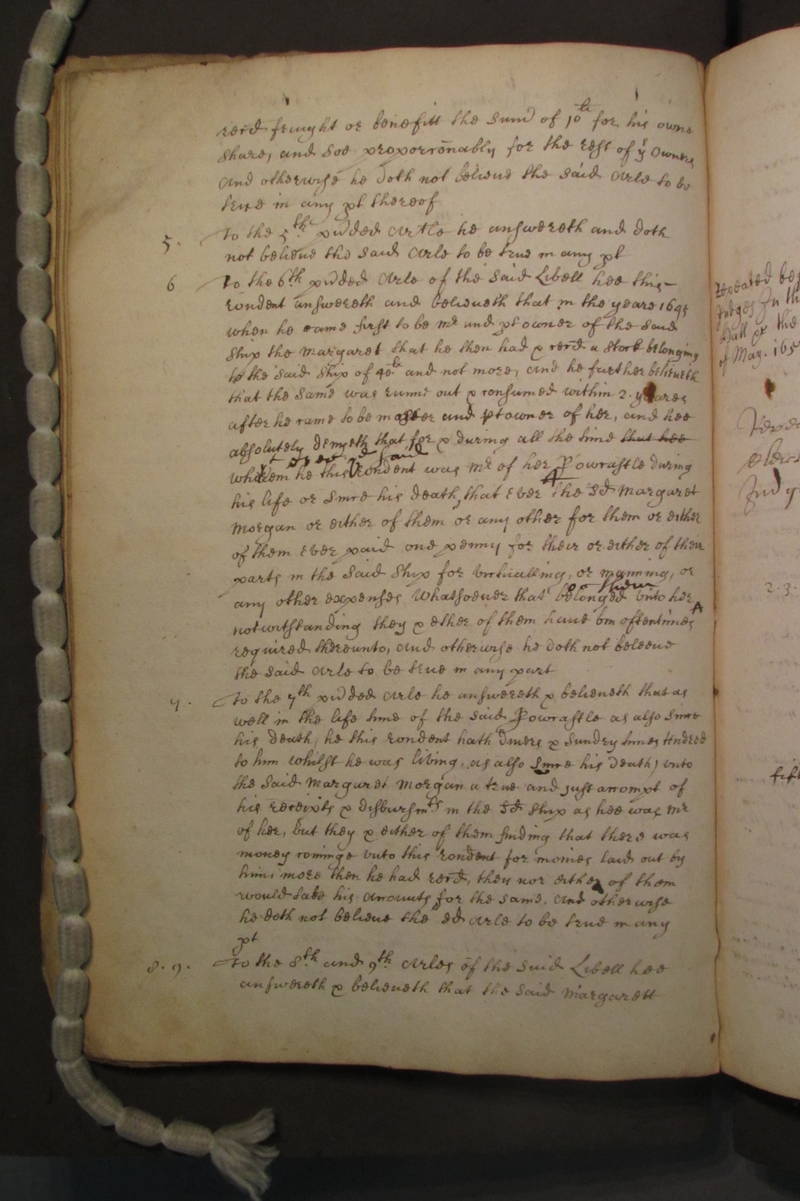 recd fraught or benefitt the sume of 10li for his owne
share, and soe proporconably for the rest of ye Owners
And otherwise he doth not beleive the said Arle to be
true in any pt thereof
5. To the 5th pidded Artle he answereth and doth
not beleive the said Arle to be true in any pt
6 To the 6th pidded Arle of the said Libell hee this
rondent answereth and beleiveth that in the yeare 164
when he came first to be mr and pt owner of the said
ship the Margaret that he then had & recd a stock belonging
to the said ship of 40li and not more, and he further beleiveth
that the same was runne out & consumed within 2. yeares
after he came to be master and ptowner of her, and hee
absolutely denyeth that for & during all the time that hee
wherein he this rondent was mr of her Powcastle during
his life or since his death, that Ever the sd Margaret
Morgan or either of them or any other for them or either
of them Ever paid one penny for their or either of their
parts in the said ship for victualling, or manning, or
any other expenses whatsoever that belonged unto her
notwithstanding they & ether of them have bin oftentimes
required thereunto, And otherwise he doth not beleeve
the said Arle to be true in any part
7. To the 7th pidded Arle he answereth & beleiveth that as
well in the life time of the said Powcastle as also since
his death, he this rondent hath divers & sundry times tendred
to him whilst he was living, as also since his death, unto
the said Margaret Morgan a true and just accompt of
his receipts & disbursmts in the sd ship as hee was mr
of her, but they & either of them finding that there was
money cominge unto this rondent for monies laid out by
him more then he had recd, they nor either of them
would take his accounts for the same, And otherwise
he doth not beleive the sd Arle to be true in any
pt
8. 9. To the 8th and 9th Arles of the said Libell hee
answereth & beleiveth that the said Margarett
of May. 165
2.3.